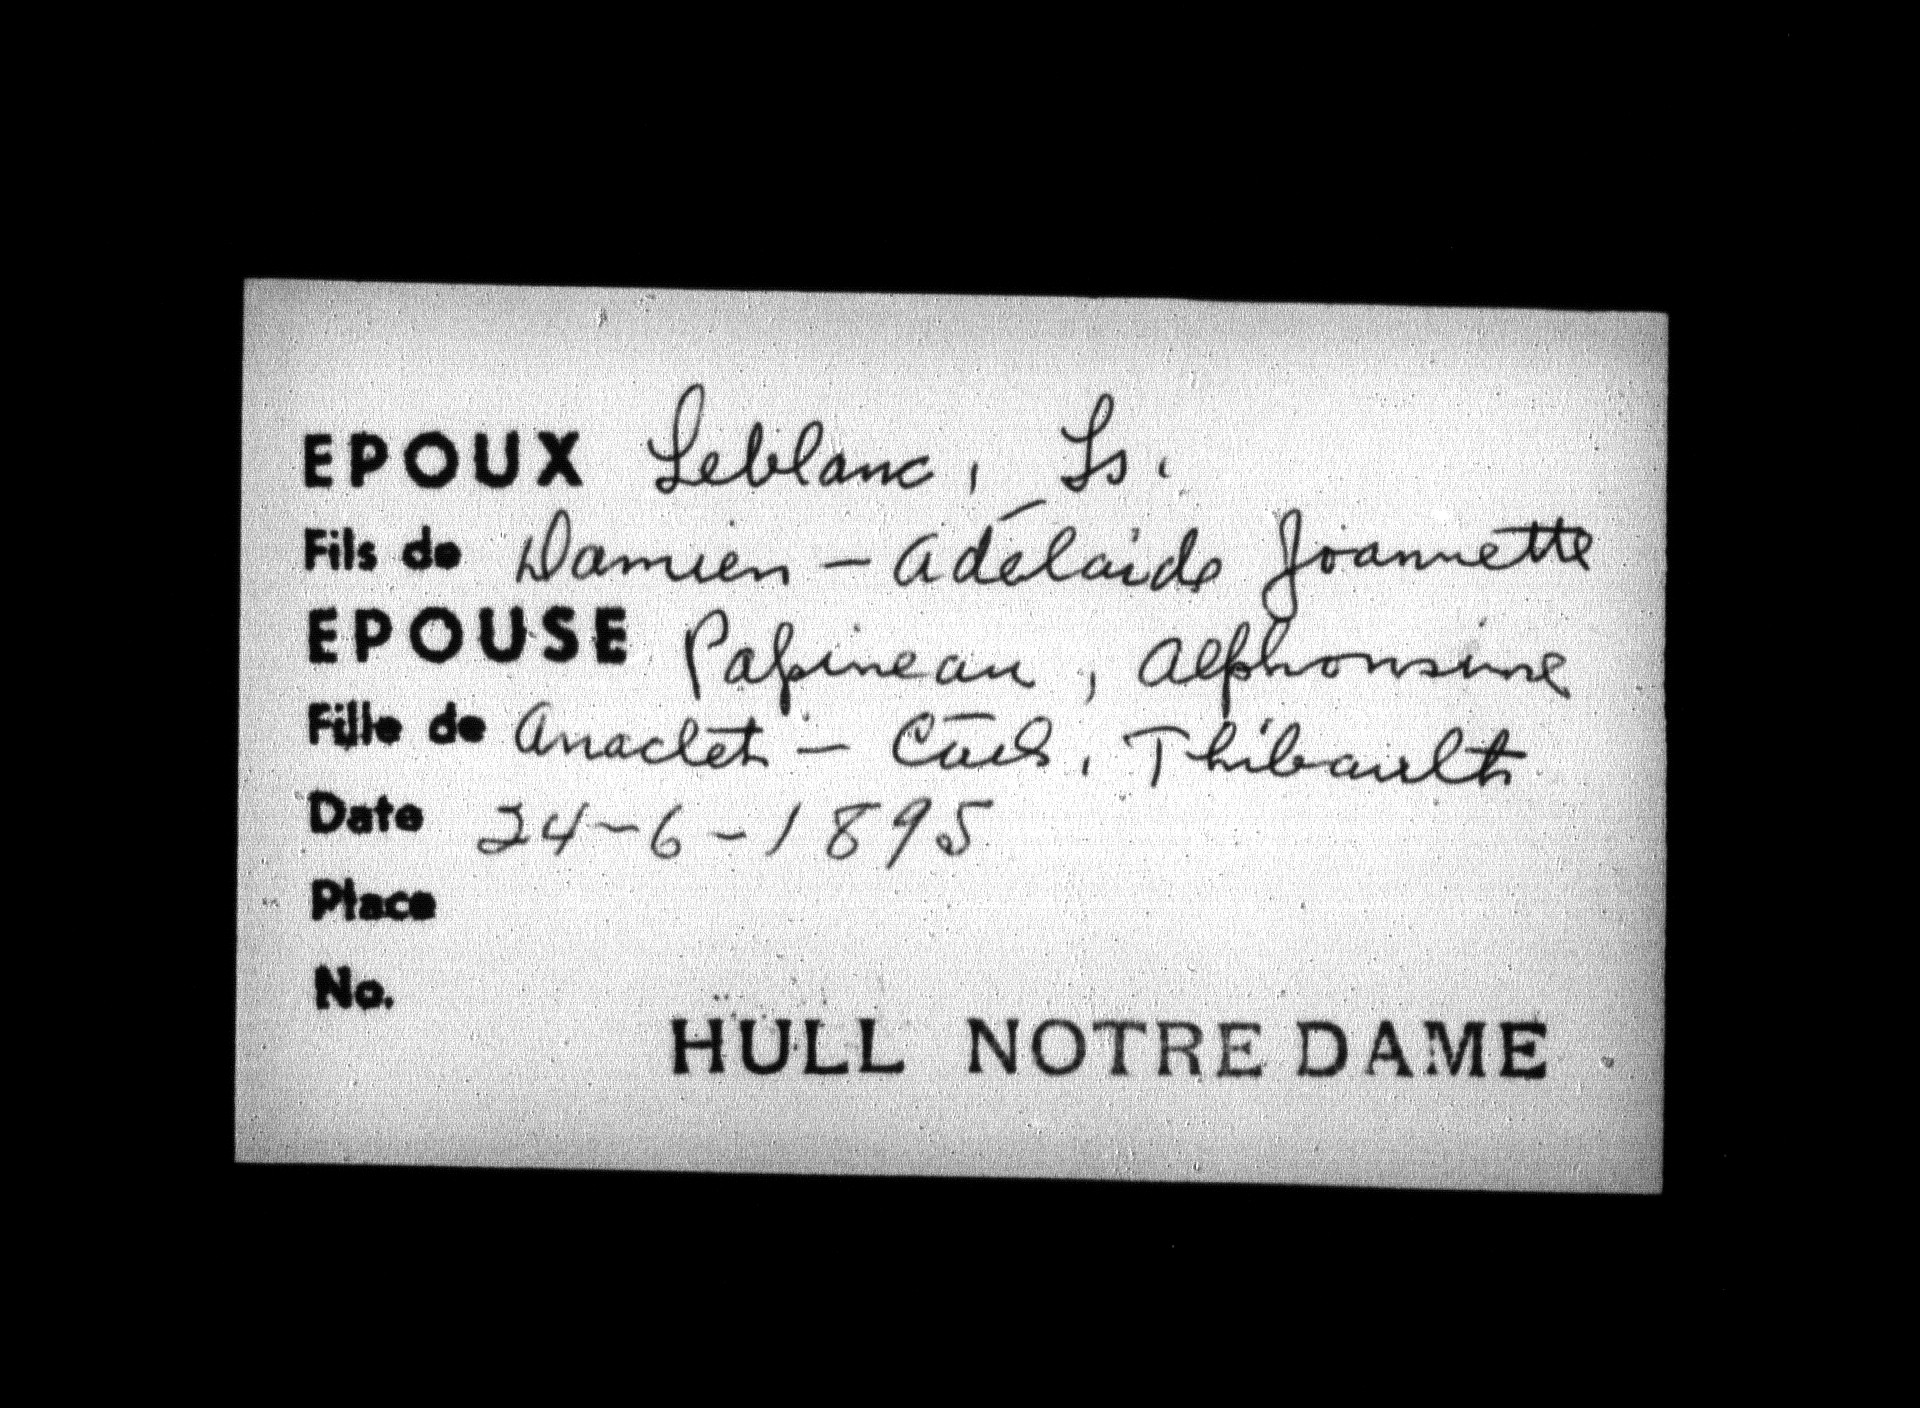 EPOUX Leblanc, Ls.
Fils de Damien - Adélaide Joannette
EPOUSE Papineau, Alphonsine
Fille de Anaclet - Thibault
Date 24-6-1895
Place
No.
HULL NOTRE DAME